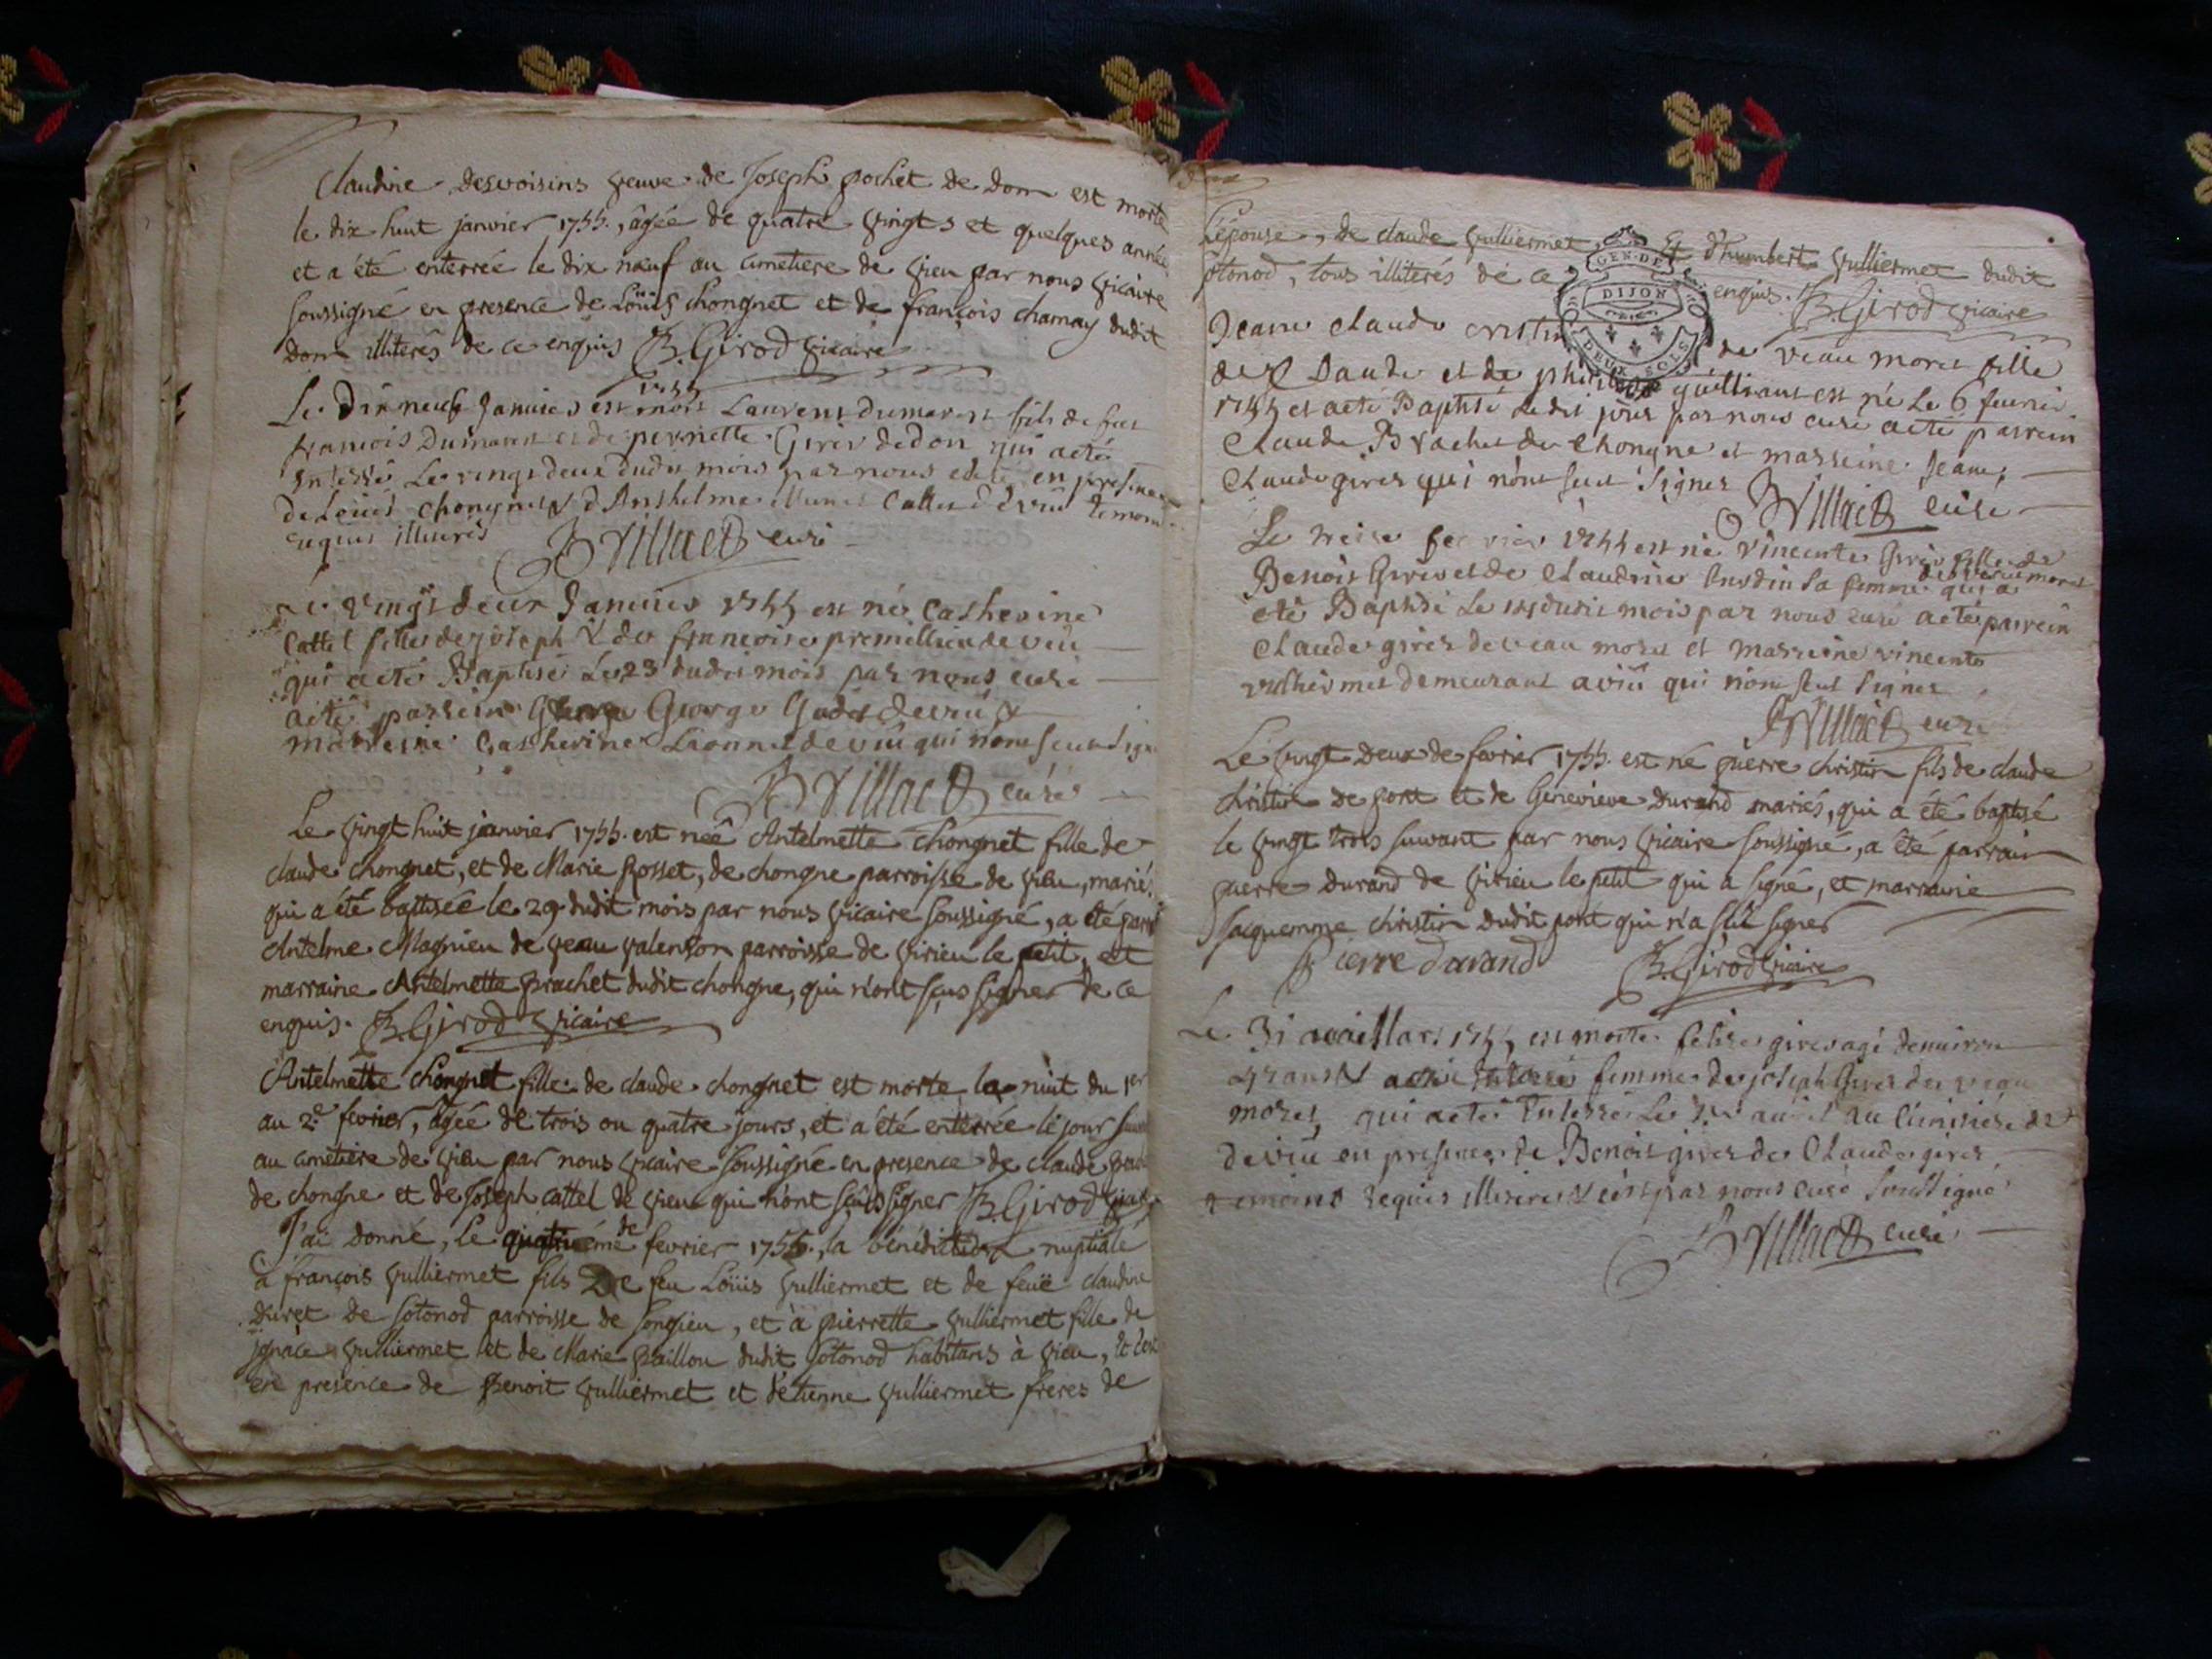 Claudine Desvoisins veuve de Joseph pochet de Don est morte
le dix huit janvier 1755. âgée de quatre vingts et quelques année
et a été enterrée le dix neuf au cimetiere de vieu par nous vicaire
soussigné en presence de Loüis chongnet et de françois charnay dudit
Don illiterés de ce enquis B. Girod vicaire
1755
Le Dix neuf Janvier est mort Laurent Dumarest fils de feu
francois Dumarest et de pernette Girer de don qui a eté
Enterré Le vingt deux dudit mois par nous curé en presence
de Loüis chongnet & d'Anthelme Cattel de viû temoins
enquis illiterés B Villiact curé
Le vingt deux Janvier 1755 est né Catherine
Cattel fille de joseph & de françoise premillieu de viû
qui a eté Baptisé Le 23 dudit mois par nous curé
a eté parrein George de viû &
marreine Catherine de viû qui n'ont seut signe
B Villiact curé
Le vingt huit janvier 1755. est neé Antelmette chongnet fille de
claude chongnet, et de Marie Rosset, de chongne parroisse de vieu, mariés
qui a été baptisée le 29 dudit mois par nous vicaire soussigné, a été parr
Antelme Magnieu de veau valenson parroisse de virieu le petit, et
marraine Antelmette Brachet dudit chongne, qui n'ont sçus signer de ce
enquis. B. Girod vicaire
Antelmette chongnet fille de claude chongnet est morte la nüit du 1er
au 2e fevrier, âgée de trois ou quatre jours, et a été enterrée le jour
au cimetiere de vieu par nous vicaire soussigné en presence de claude
de chongne et de Joseph cattel de vieu qui n'ont sçûs signer B. Girod
J'ai donné, le quatriéme de fevrier 1755., la bénédiction nuptiale
à françois vulliermet fils de feu Loüis vulliermet et de feuë claudine
Duret de sotonod parroisse de songieu, et à pierrette vulliermet fille de
ignace vulliermet et de Marie Baillou dudit sotonod habitans à vieu, et
en presence de Benoit vulliermet et d'étienne vulliermet freres de
L'épouse, de claude vulliermet, Et d'humbert vulliermet dudit
sotonod, tous illiterés de ce enquis. B. Girod vicaire
GEN. DE
DIJON
DEUX SOLS
Jeane Claude de veau mores fille
de Claude et de est né Le 6 feurie
1755 et a eté Baptisé Ledit jour par nous curé a eté parrein
Claude Brachet de Chongne et marreine Jeane
Claude girer qui n'ont seut signer B Villiact curé
Le treise fevrier 1755 est né vincente Girer fille de
Benoit Girer et de Claudine sa femme de veau mores qui a
eté Baptisé Le dudit mois par nous curé a eté parrein
Claude girer de veau mores et marreine vincente
vulhiermet demeurant a viû qui n'ont seut signer
B Villiact curé
Le vingt deux de fevrier 1755. est né pierre christin fils de claude
christin de pont et de Genevieve Durand mariés, qui a été baptisé
le vingt trois suivant par nous vicaire soussigné, a été parrain
pierre Durand de virieu le petit qui a signé, et marraine
Jacquemme christin dudit pont qui n'a sçû signer
Pierre durand B. Girod vicaire
Le 31 1755 est morte girer agé denuiron
femme de joseph Girer de veau
mores, qui a eté Enterré Le au
de viû en presence de Benoit girer de Claude girer
temoins requis illiterés par nous curé soussigné
B Villiact curé